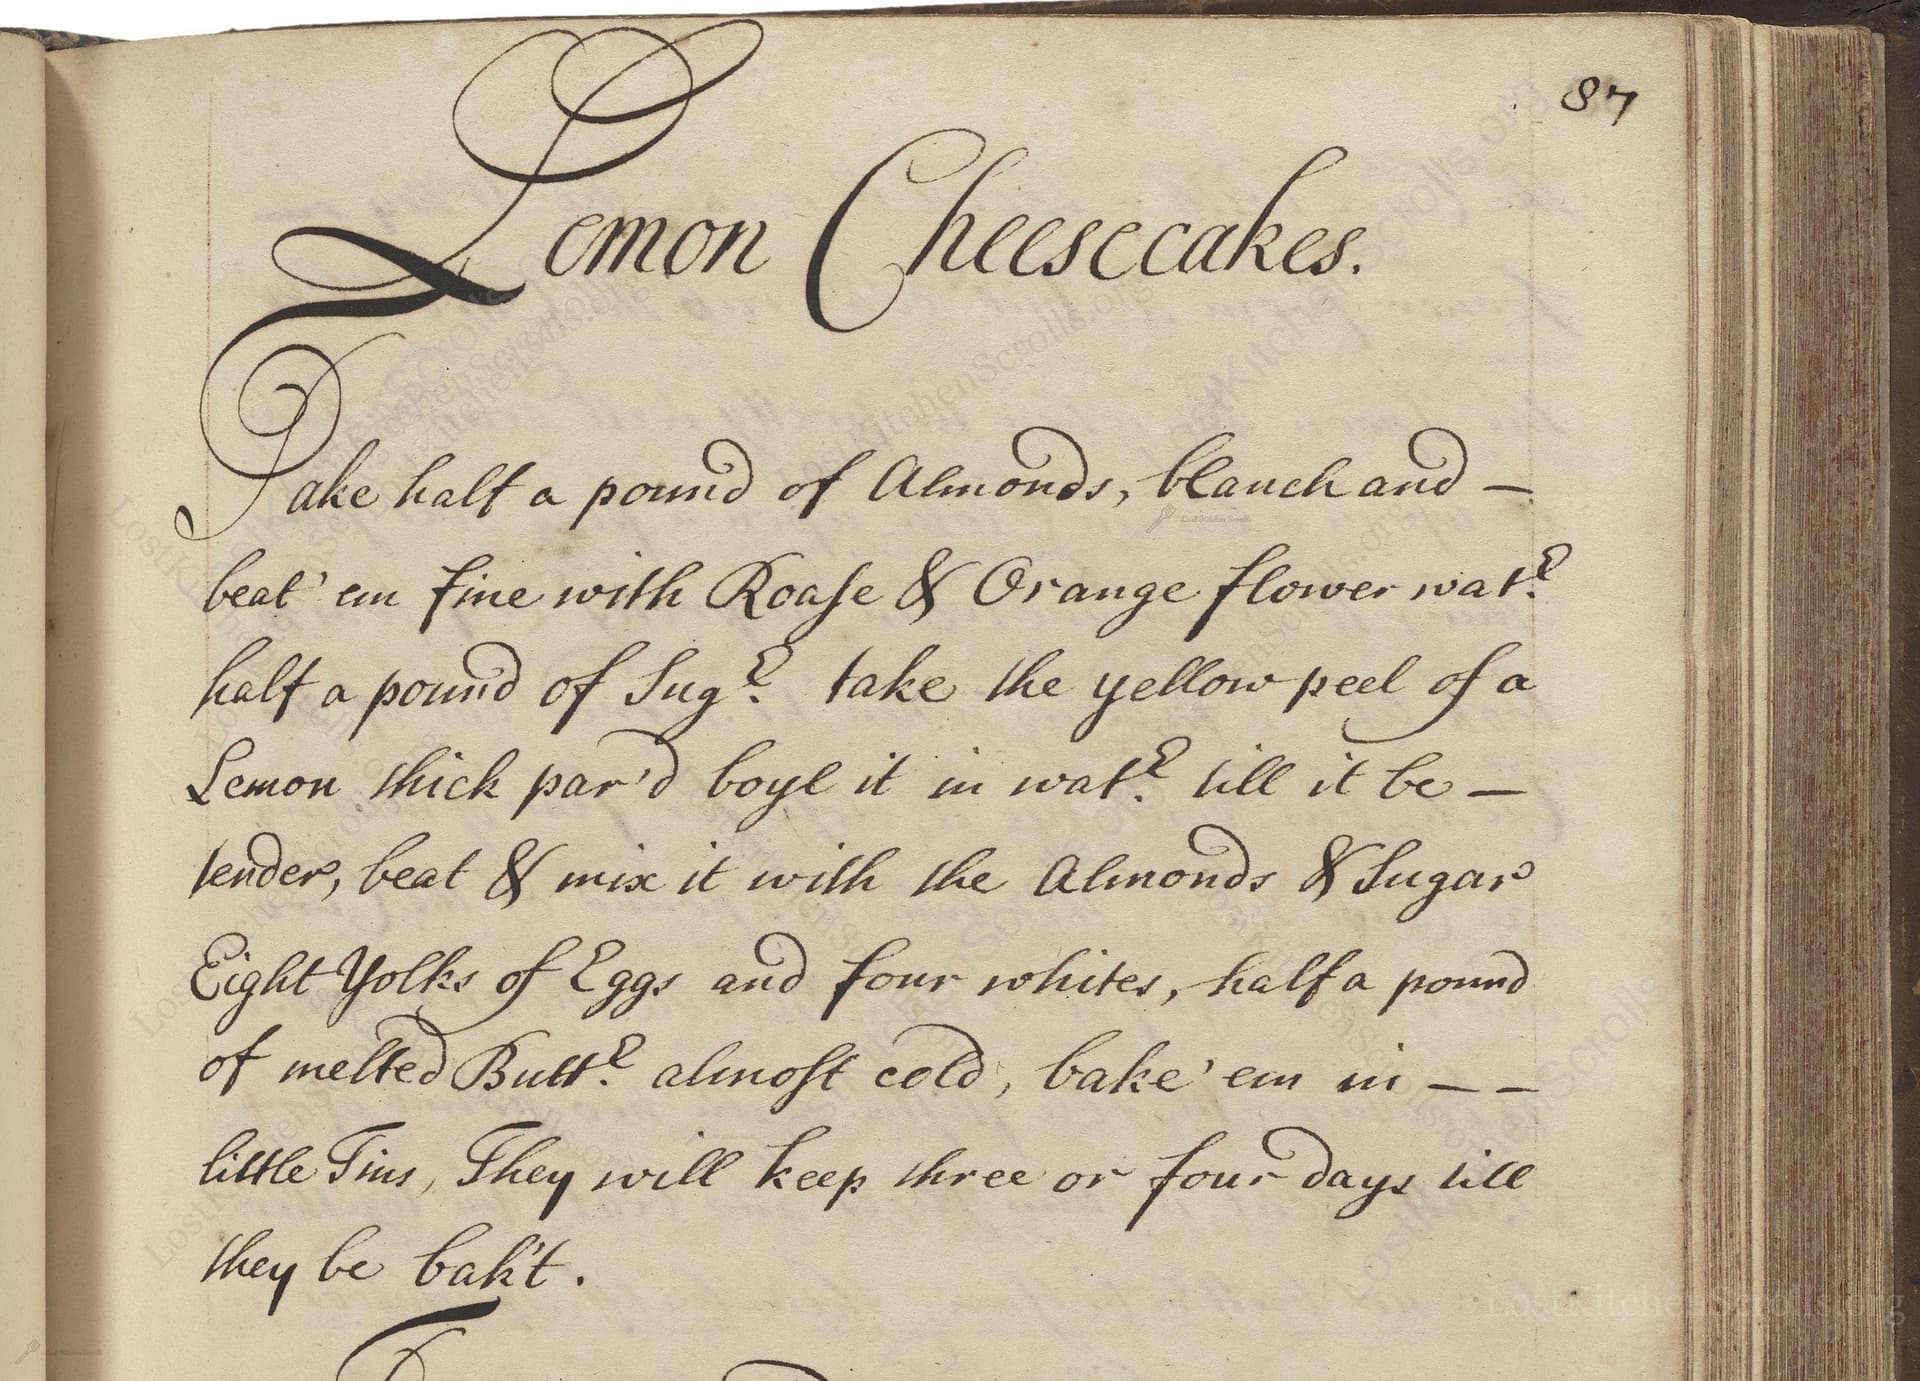 87
Lemon Cheesecakes.
Take half a pound of Almonds, blanch and –
beat 'em fine with Roase & Orange flower watr.
half a pound of Sugr. take the yellow peel of a
Lemon thick par'd boyl it in watr. till it be –
tender, beat & mix it with the Almonds & Sugar
Eight Yolks of Eggs and four whites, half a pound
of melted Buttr. almost cold, bake 'em in – –
little Tins, They will keep three or four days till
they be bak't.
LostKitchenScrolls.org